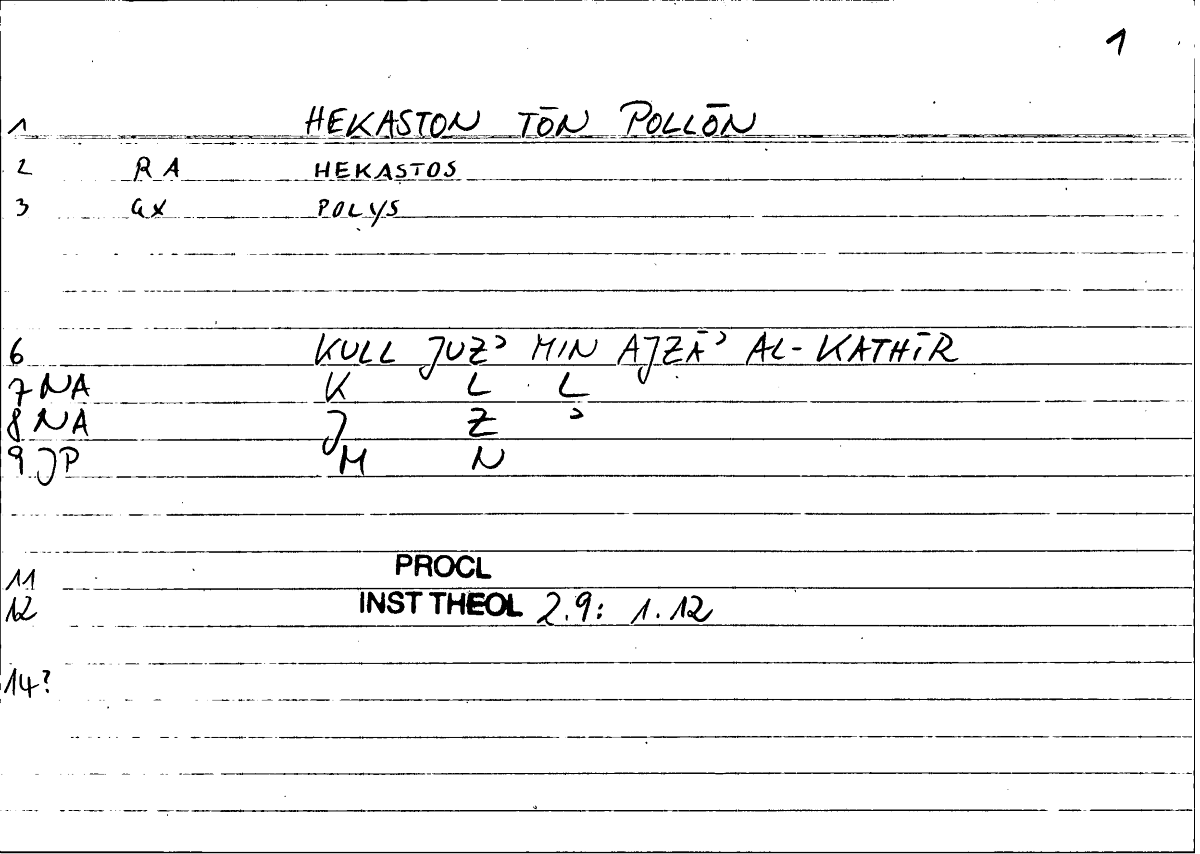 1
1 HEKASTON TŌN POLLŌN
2 RA HEKASTOS
3 GX POLYS
6 KULL JUZʾ MIN AJZĀʾ AL-KATHĪR
7 NA K L L
8 NA J Z ʾ
9 JP M N
11 PROCL
12 INST THEOL 2.9: 1.12
14?